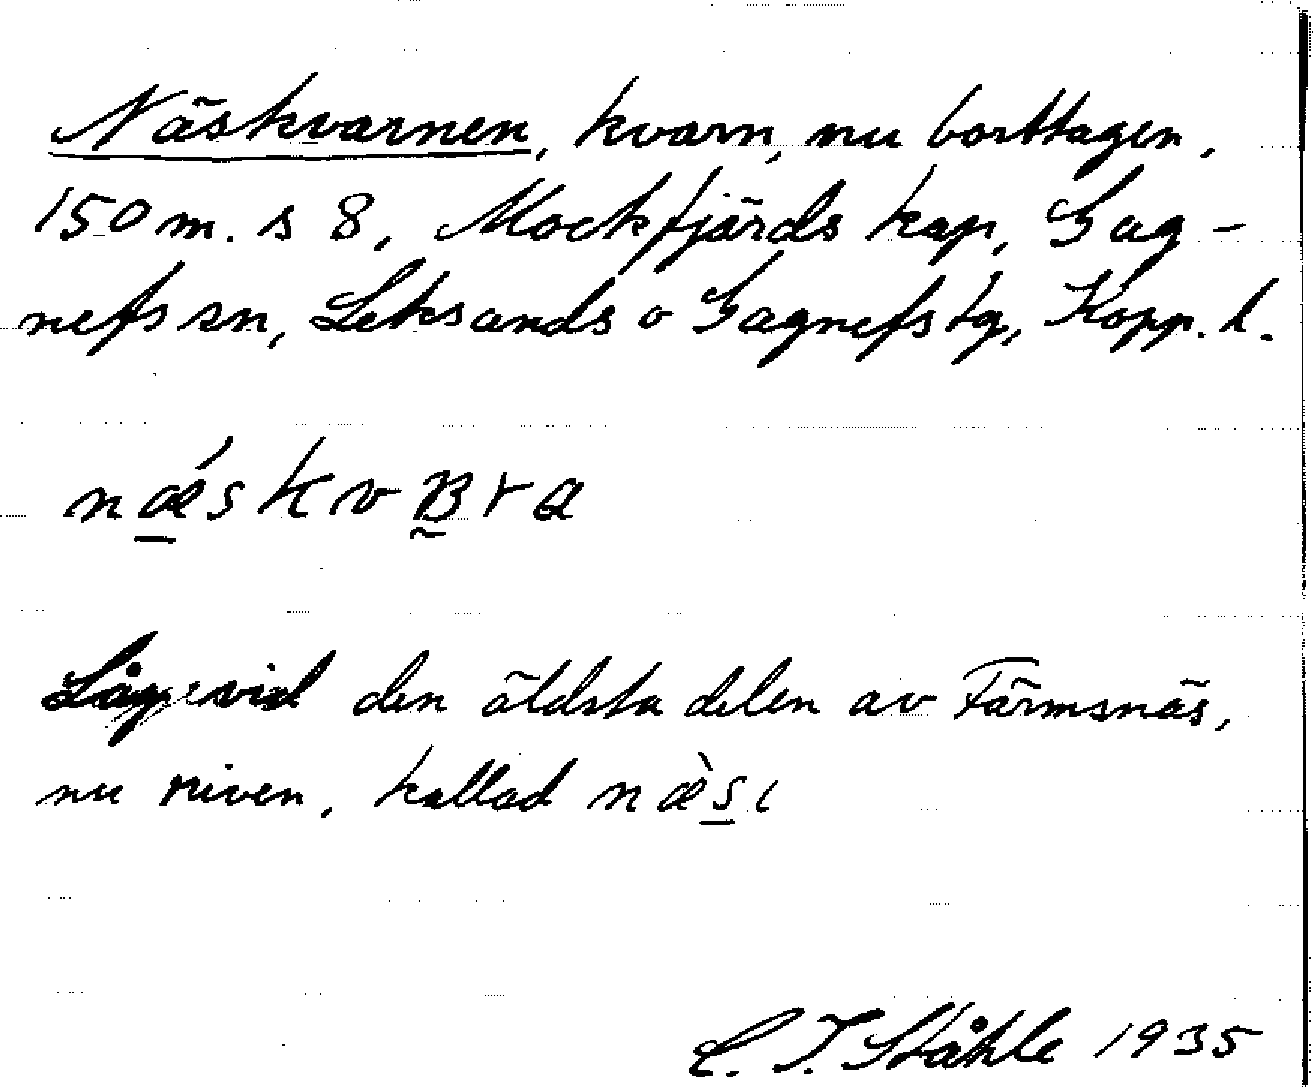 Näskvarnen, kvarn, nu borttagen,
150 m. s 8, Mockfjärds kap, Gag-
nefs sn, Leksands o Gagnefs tg, Kopp. l.
nǽskvBra
den äldsta delen av Färmsnäs,
nu riven, kallad næ̀sı
C. I. Ståhle 1935